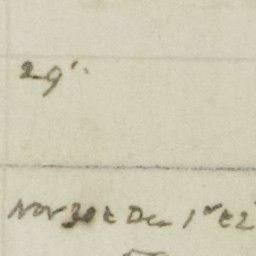 29"
Nov 30 & Dec 1st & 2